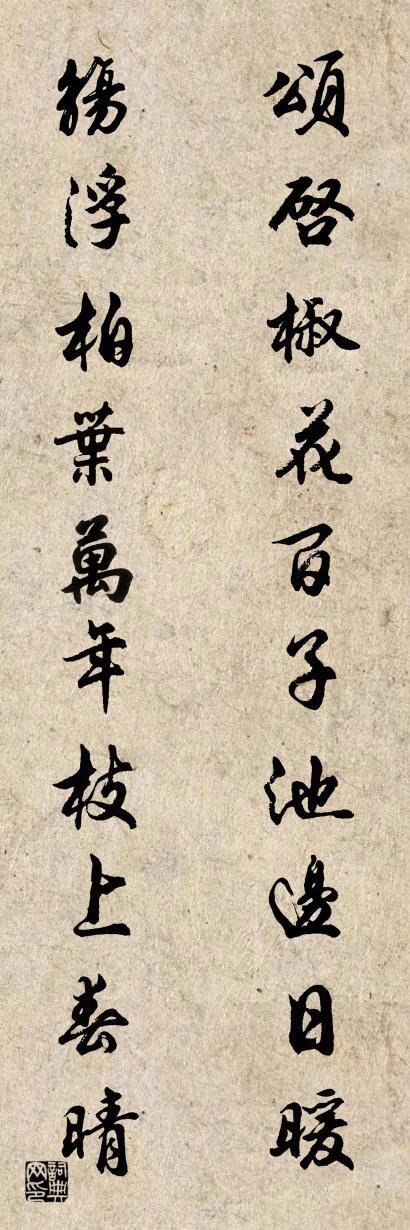 頌啓椒花百子池邊日暖
觴浮柏葉萬年枝上春晴
詞典
网印